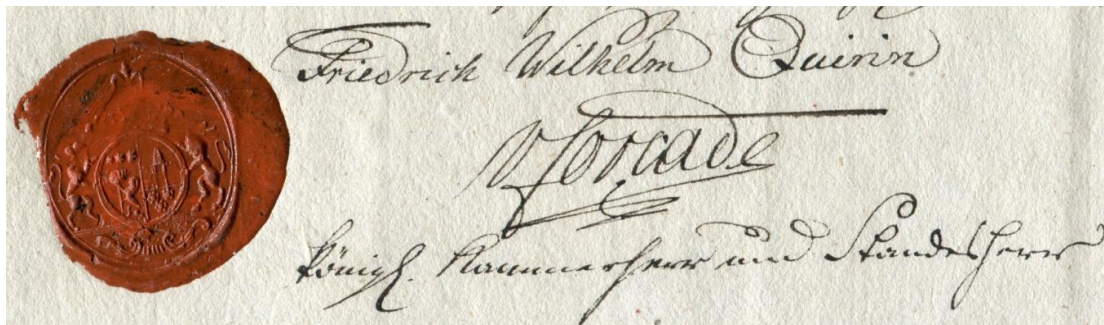 Friedrich Wilhelm Quirin
v Forcade
königl. Kammerherr und Standesherr